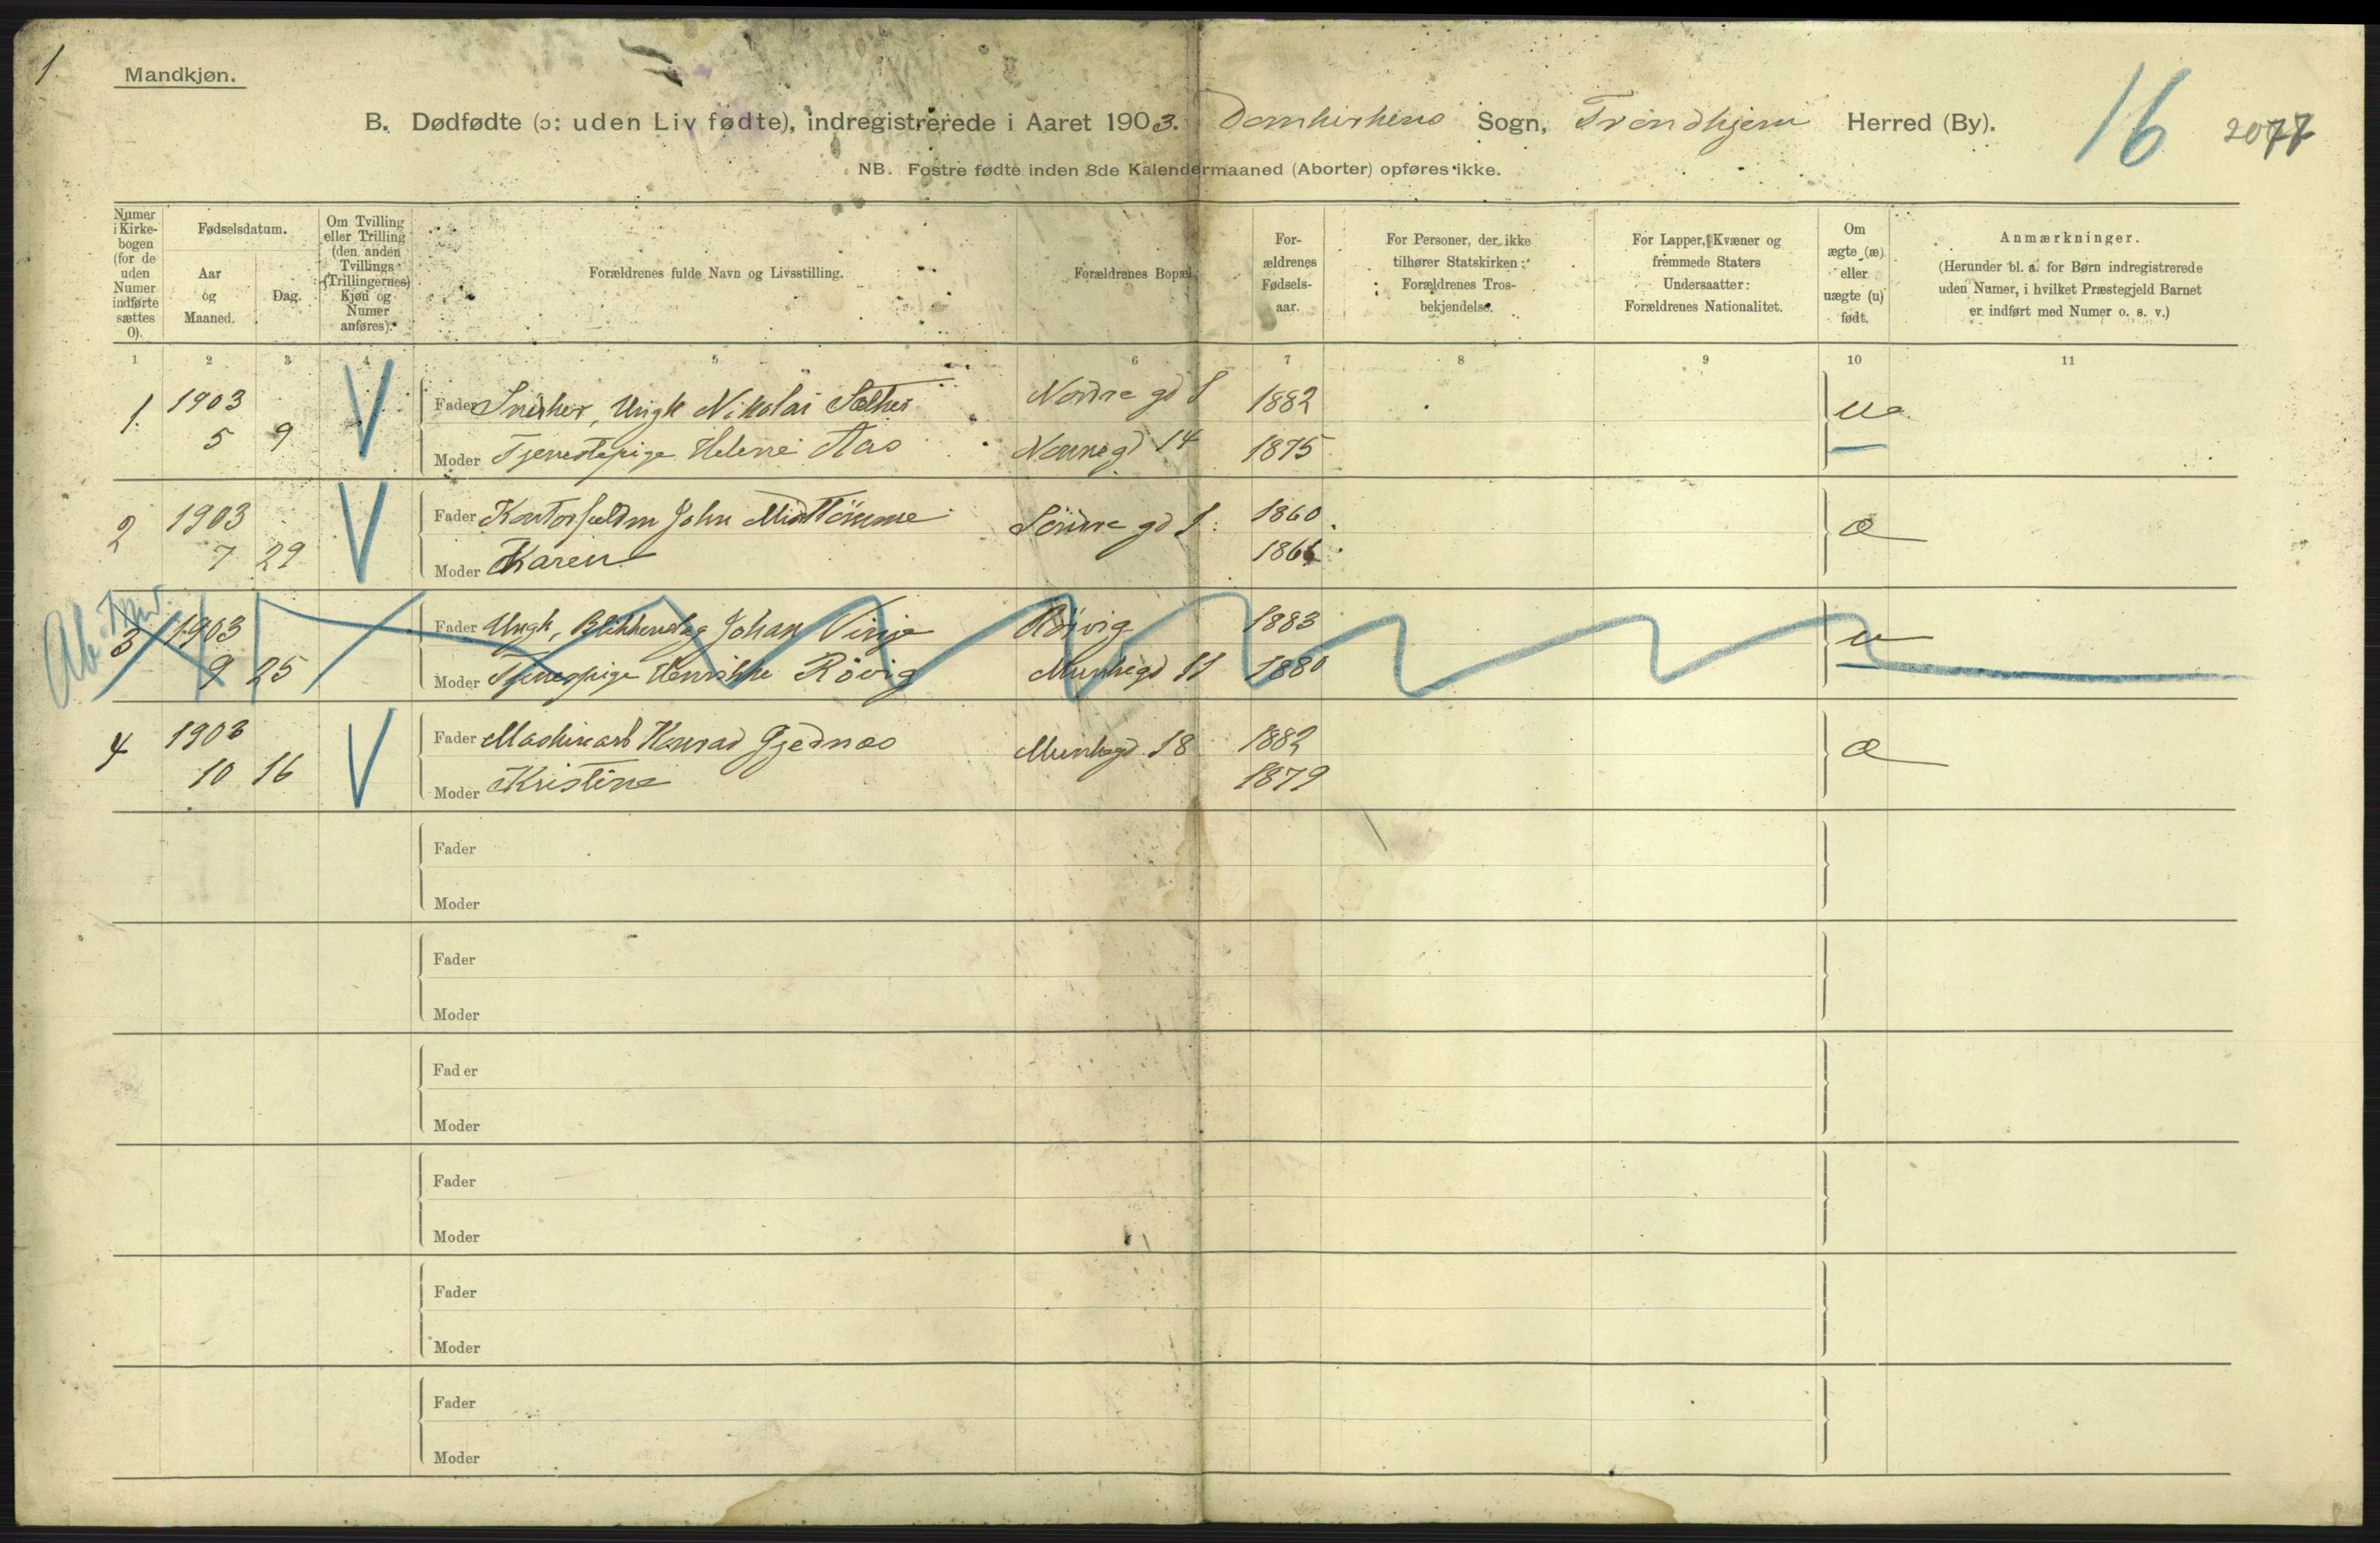 1
Mandkjøn.
B. Dødfødte (ɔ: uden Liv fødte), indregistrerede i Aaret 1903. Domkirkens Sogn, Trondhjem Herred (By).
16 2077
NB. Fostre fødte inden 8de Kalendermaaned (Aborter) opføres ikke.
Numer i Kirke-bogen (for de uden Numer indførte sættes 0).
Fødselsdatum.
Aar og Maaned.
Dag.
Om Tvilling eller Trilling (den anden Tvillings (Trillingernes) Kjøn og Numer anføres).
Forældrenes fulde Navn og Livsstilling.
Forældrenes Bopæl.
For-ældrenes Fødsels-aar.
For Personer, der ikke tilhører Statskirken: Forældrenes Tros-bekjendelse.
For Lapper, Kvæner og fremmede Staters Undersaatter: Forældrenes Nationalitet.
Om ægte (æ) eller uægte (u) født.
Anmærkninger.
(Herunder bl. a. for Børn indregistrerede uden Numer, i hvilket Præstegjeld Barnet er indført med Numer o. s. v.)
1 2 3 4 5 6 7 8 9 10 11
1 1903 Fader Snedker, Ungk Nikolai Sæther Nordre gd 1 1882
5 9 Moder Tjenestepige Helene Aas Nonnegd 14 1875
2 1903 Fader Kontorfuldm John Midttömme Söndre gd 1 1860 æ
7 29 Moder Karen 1866
3 1903 Fader Ungk, Blikkenslag Johan Vinje Rövig 1883 u
9 25 Moder Tjenespige Henrikke Rövig Munkegd 11 1880
4 1903 Fader Maskinarb Konrad Gjednæs Munkegd 18 1882 æ
10 16 Moder Kristine 1879
Fader
Moder
Fader
Moder
Fader
Moder
Fader
Moder
Fader
Moder
Fader
Moder